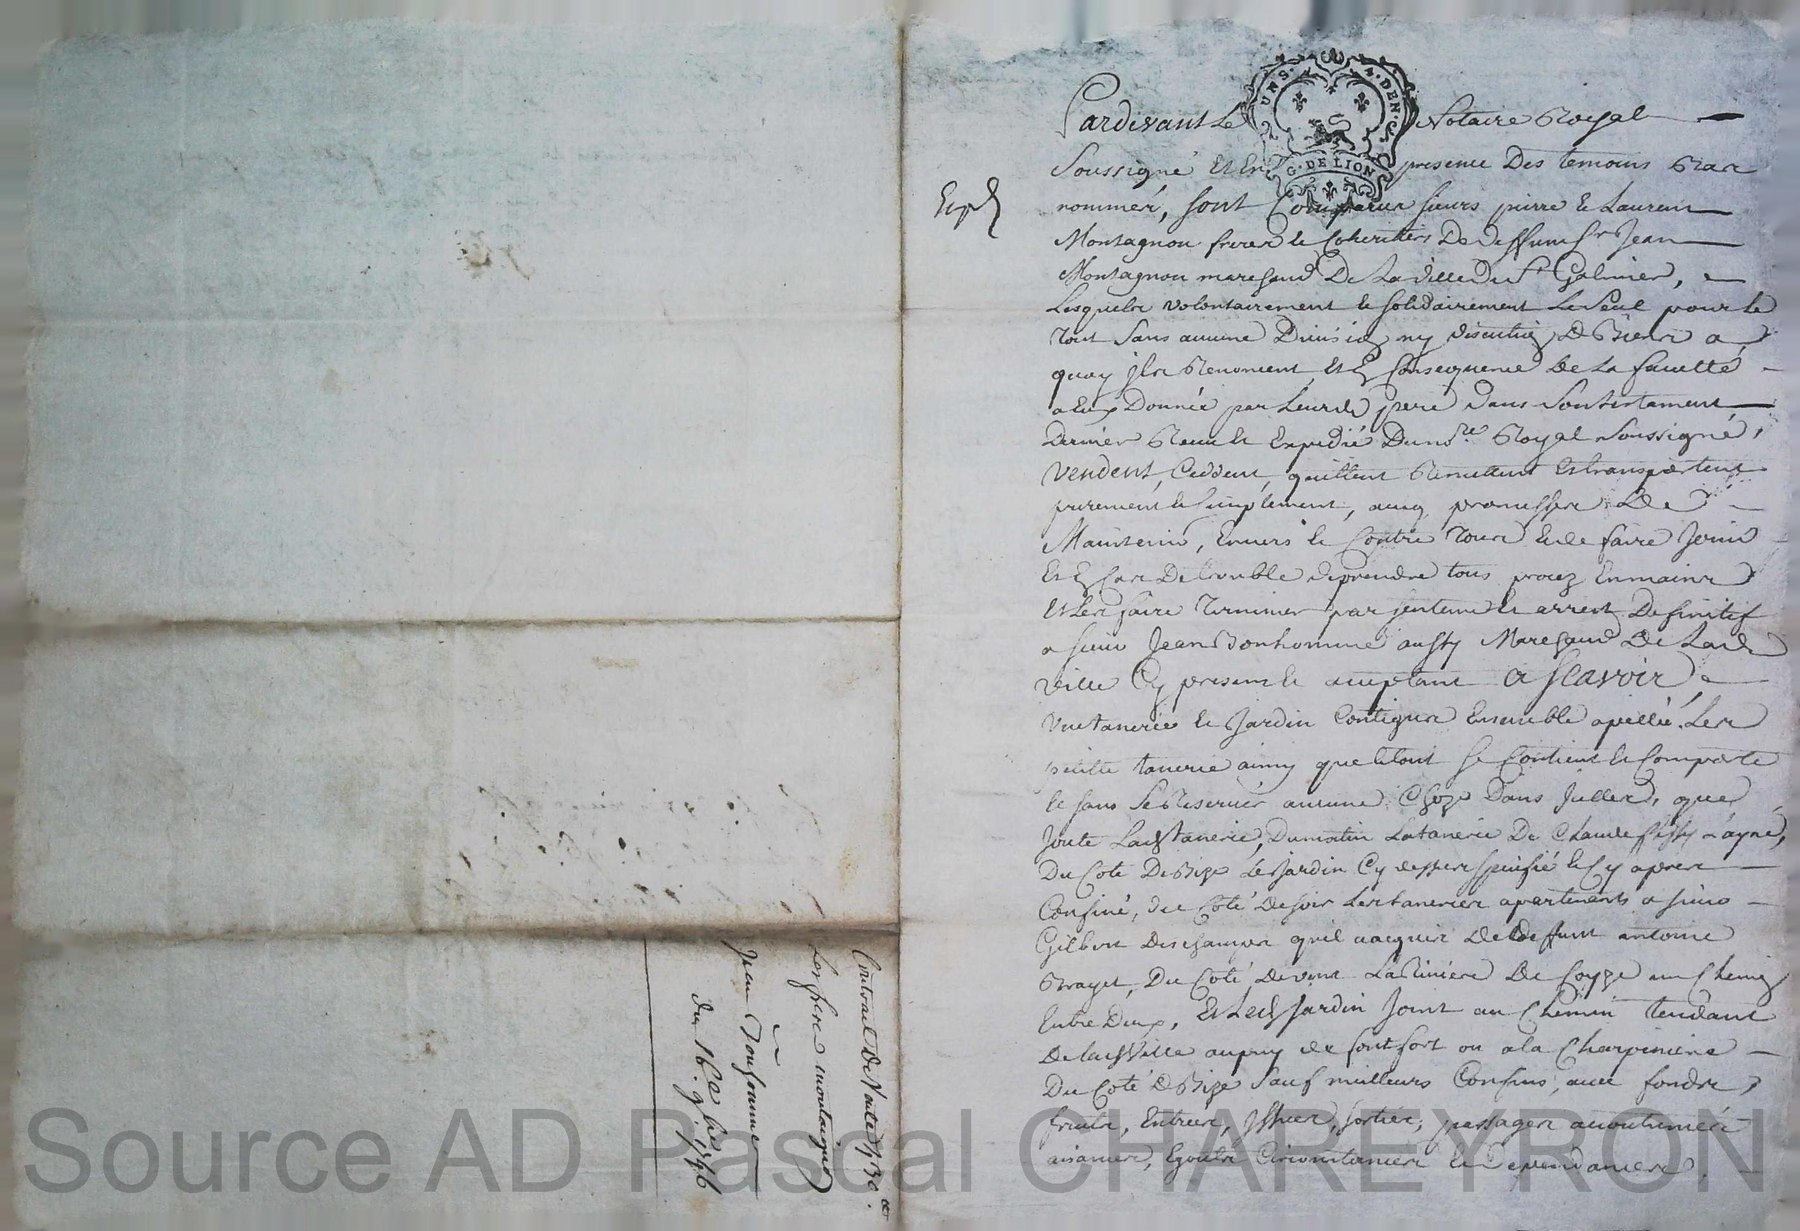 Pardevant Le Notaire Royal
UN S. 4. DEN.
G. DE LION
Soussigné Et En presence Des temoins Bas
nommés, sont Comparus sieurs pierre et Laurent
Expé
Montagnon freres et Coheritiers De deffunt Sr Jean
Montagnon marchand De La ville de St Galmier,
Lesquels volontairement et solidairement Le seul pour le
tout sans aucune Division ny discution De Biens a
quoy ils Renoncent, Et En Consequence de La faculté
a Eux Donnée par Leurd. pere dans Son testament
Dernier Receu Et Expedié Du nore Royal Soussigné,
vendent, Ceddent, quittent Remettent Et transportent
purement et simplement, avec promesse De
Maintenir, Envers et Contre tous et de faire Jouir
Et En Cas De trouble de prendre tous procez En mains
Et Les faire terminer par sentence et arrest Definitif
a sieur Jean Bonhomme aussy Marchand De Lad.
ville Cy present et acceptant a scavoir
une tanerie et Jardin Contigus Ensemble apellé Les
petitte tanerie ainsy que le tout se Contient et Comporte
et sans se Reserver aucune Choze Dans Icelles, que
Joute Lad. tanerie, Du matin La tanerie De Claude Layné,
Du Coté De Bize Le Jardin Cy dessus specifié et Cy apres
Confiné, du Coté de soir Les taneries apartenants a sieur
Gilbert Deschamps qu'il a acquis de deffunt antoine
Brayet, Du Coté de vent La Riviere De Coyze un Chemin
Entre Deux, Et Led. Jardin Joint au Chemin tendant
De lad. Ville au puy de fontfort ou a la Charpiniere
Du Coté De Bize sauf meilleurs Confins, avec fonds,
fruits, Entrées, Issues, sorties, passages accoutumés
aisances, Egouts Circonstances et Dependances
Contrait De Vente 1330
Les frere montaignon
a
Jean Bonhomme
du 16e 9bre 1746
Source AD Pascal CHAREYRON